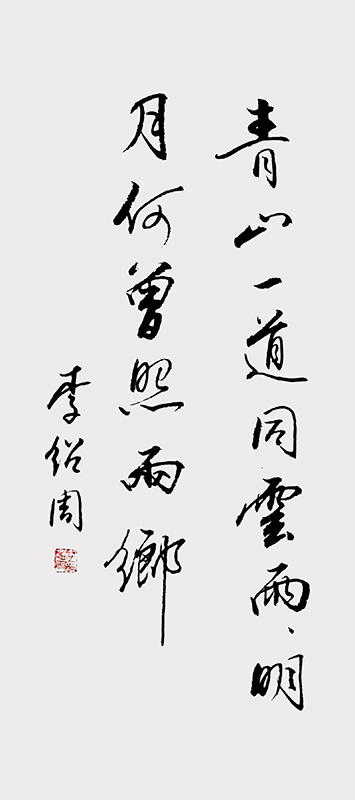 青山一道同雲雨、明
月何曾照兩鄉
李紹周